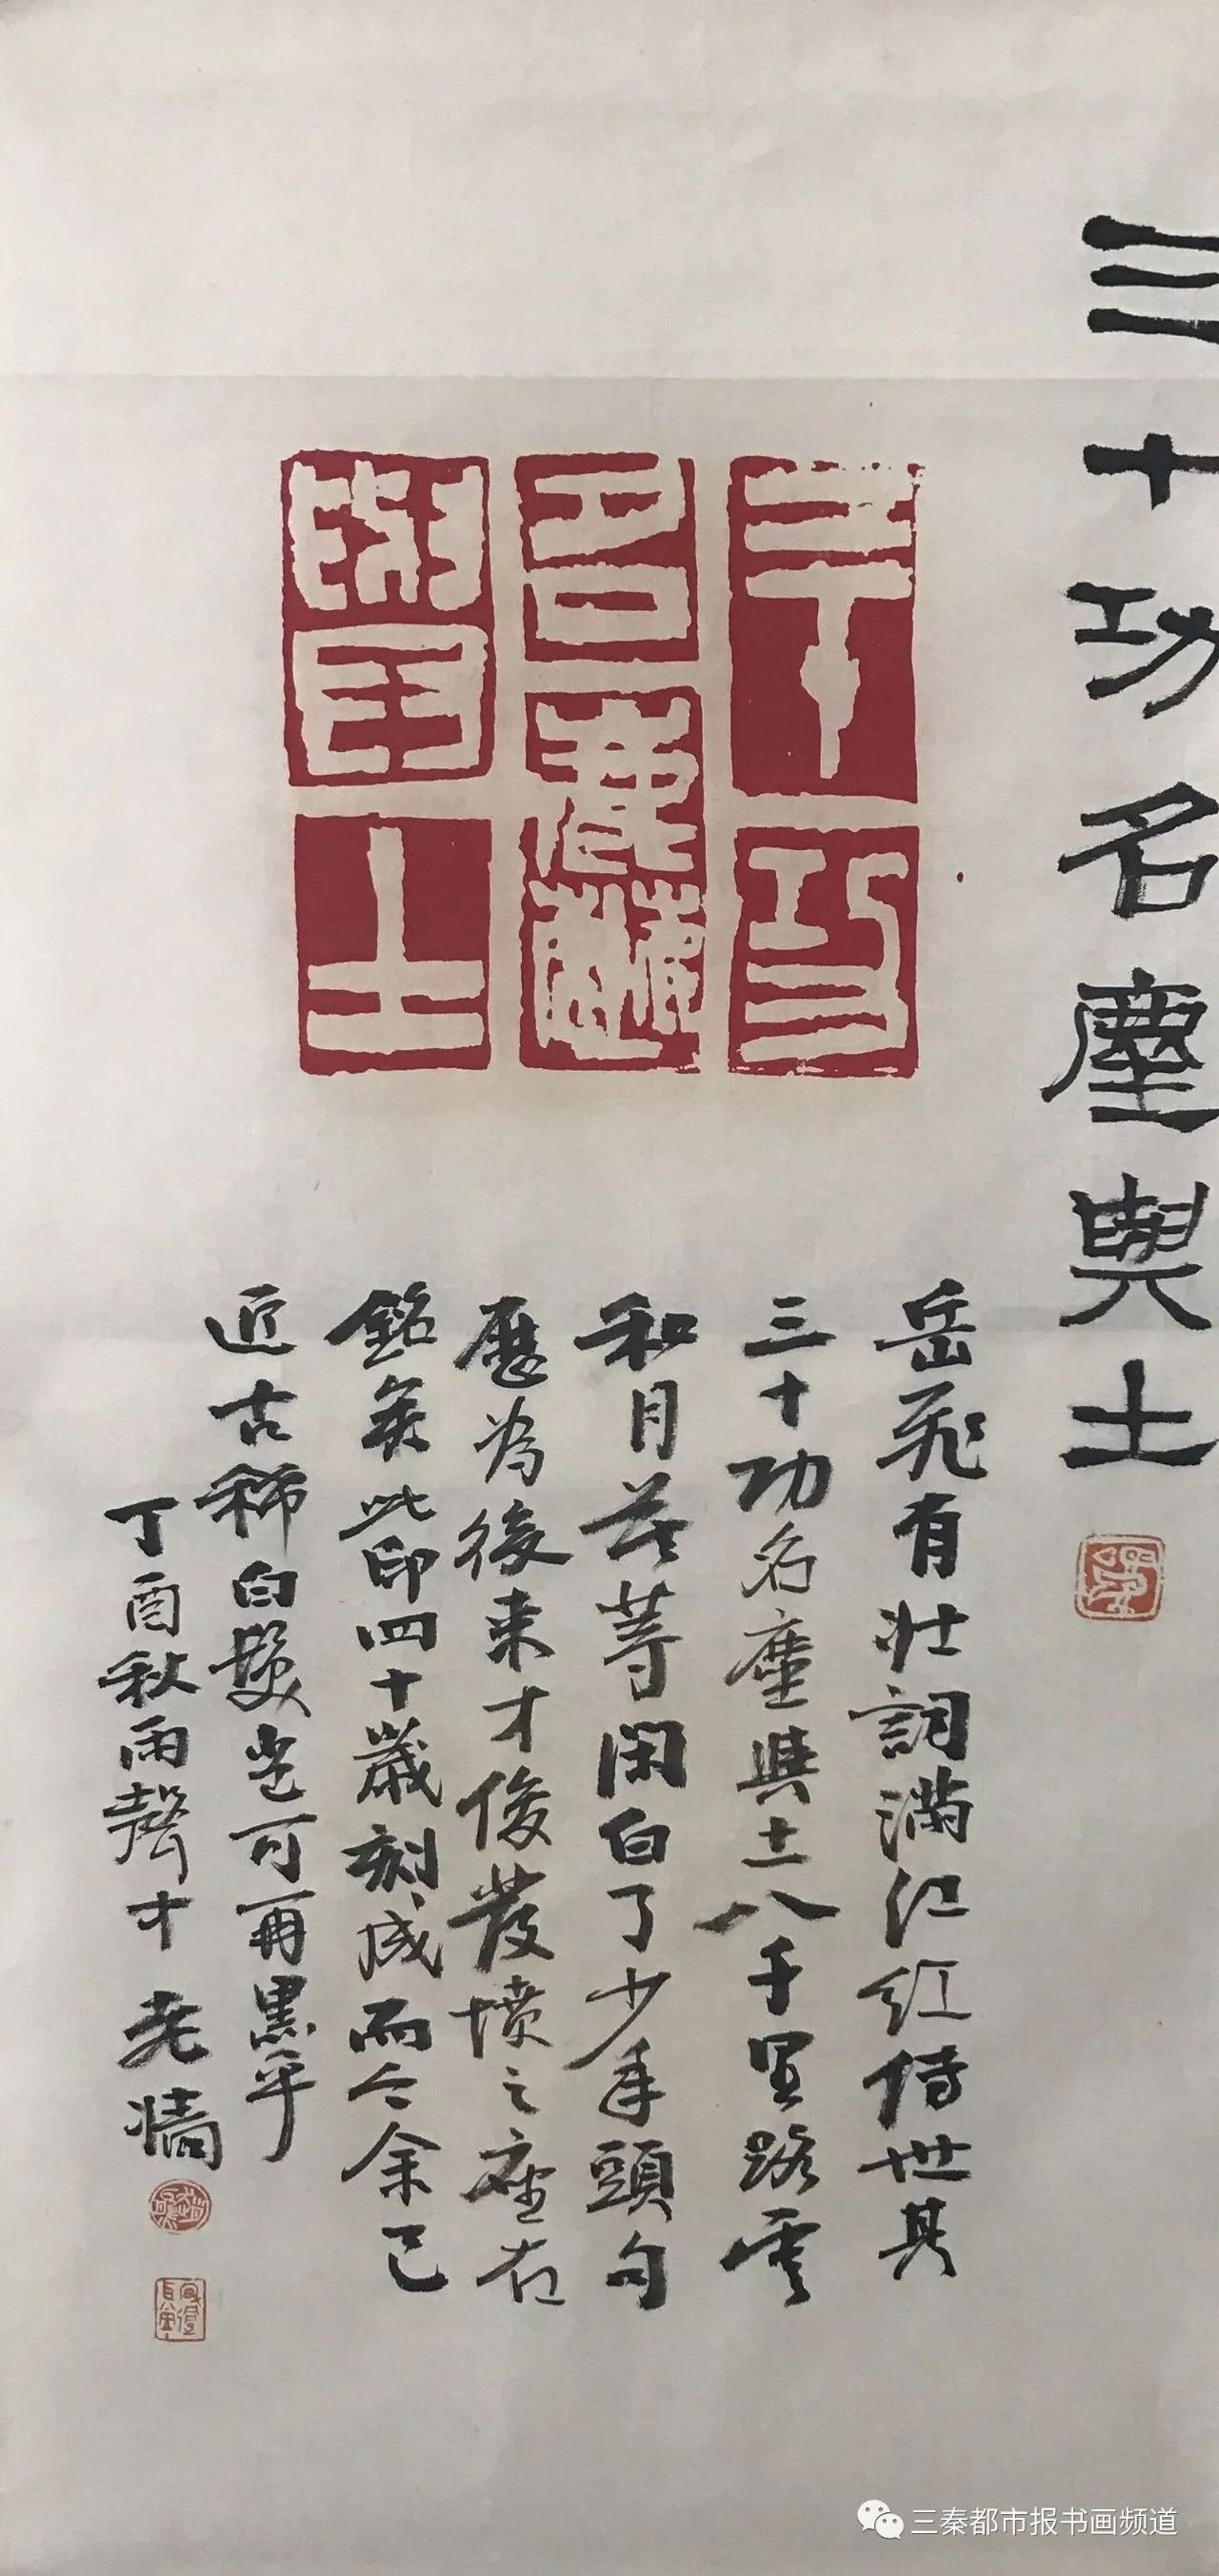 三十功名塵與土
三十功
名塵
與土
岳飛有壯詞滿江紅傳世其
三十功名塵與土八千里路雲
和月莫等閑白了少年頭句
應為後来才俊發憤之座右
銘矣此印四十歲刻成而今余已
近古稀白髮豈可再黑乎
丁酉秋雨聲中 老墻
三秦都市报书画频道